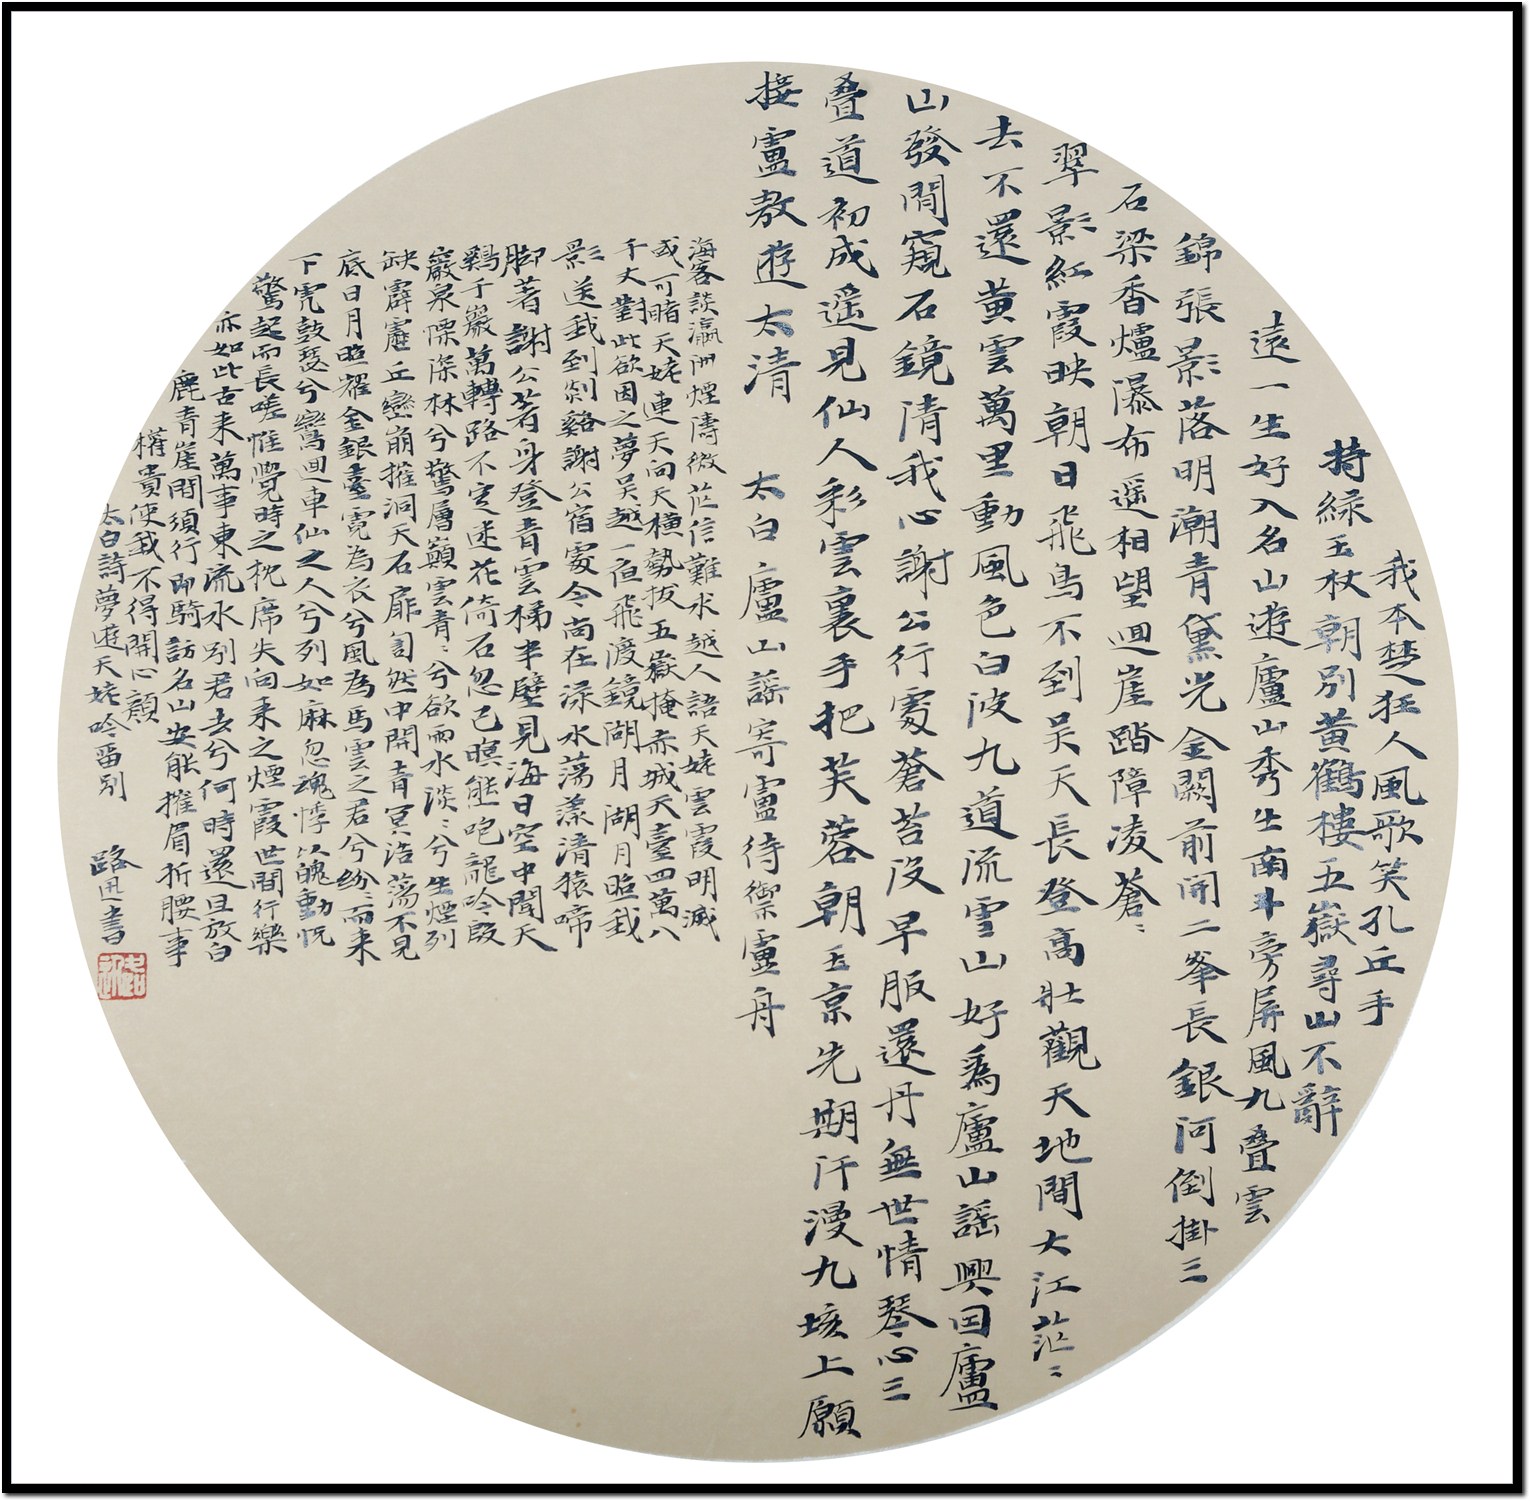 我本楚狂人風歌笑孔丘手
持緑玉杖朝別黃鶴樓五嶽尋山不辭
遠一生好入名山遊廬山秀出南斗旁屏風九疊雲
錦張影落明潮青黛光金闕前開二峯長銀河倒掛三
石梁香爐瀑布遥相望迴崖踏障凌蒼〻
翠影紅霞映朝日飛鳥不到吴天長登高壯觀天地間大江茫〻
去不還黃雲萬里動風色白波九道流雪山好爲廬山謡興因廬
山發閒窺石鏡清我心謝公行處蒼苔没早服還丹無世情琴心三
疊道初成遥見仙人彩雲裏手把芙蓉朝玉京先期汗漫九垓上願
接盧敖遊太清 太白廬山謡寄盧待禦盧舟
海客談瀛洲煙濤微茫信難求越人語天姥雲霞明滅
或可睹天姥連天向天橫勢拔五嶽掩赤城天臺四萬八
千丈對此欲因之夢吴越一夜飛渡鏡湖月湖月照我
影送我到剡谿謝公宿處今尚在渌水蕩漾清猿啼
脚著謝公著身登青雲梯半壁見海日空中聞天
鷄千巖萬轉路不定迷花倚石忽已暝熊咆龍吟殷
巖泉慄深林兮驚層巔雲青〻兮欲雨水淡〻兮生煙列
缺霹靂丘巒崩摧洞天石扉訇然中開青冥浩蕩不見
底日月照耀金銀臺霓為衣兮風為馬雲之君兮紛〻而来
下虎鼓瑟兮鸞迴車仙之人兮列如麻忽魂悸以魄動怳
驚起而長嗟惟覺時之枕席失向来之煙霞世間行樂
亦如此古来萬事東流水別君去兮何時還且放白
鹿青崖間須行即騎訪名山安能摧眉折腰事
權貴使我不得開心顔
太白詩夢遊天姥吟留別 路迅書